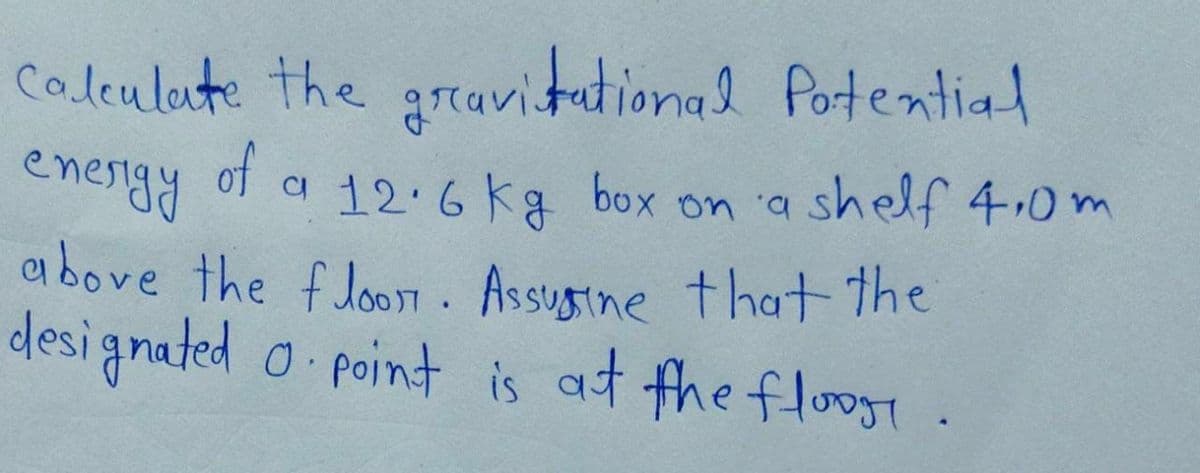 Calculate the gravitational Potential
energy of a 12.6 kg box on a shelf 4.0 m
above the floor. Assume that the
designated 0. point is at the floor.